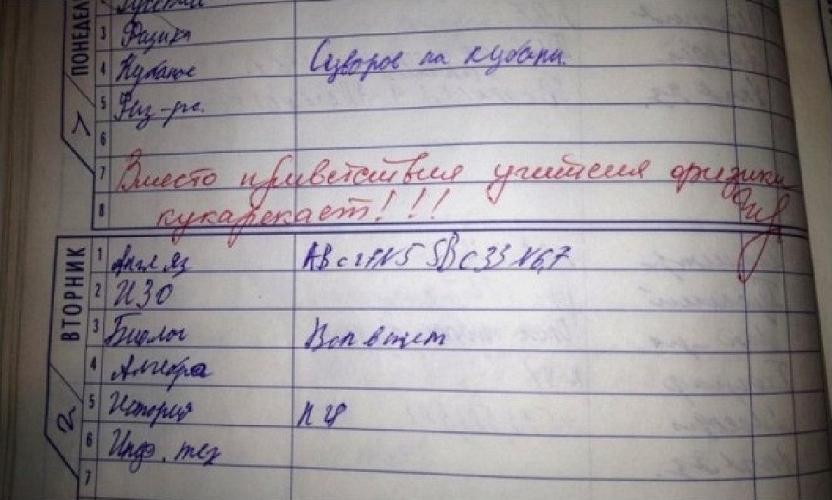 ПОНЕДЕЛ
3 Физика
4 Кубанов Суворов на кубани.
5 Физ-ра.
6
7 Вместо приветствия учителя физики
8 кукарекает!!!
ВТОРНИК
1 Англ яз АВ с 27 N5 SB с 33 N6,7
2 ИЗО
3 Биолог Воп в тет
4 Алгебра
5 История П 4
6 Инф. тех
7